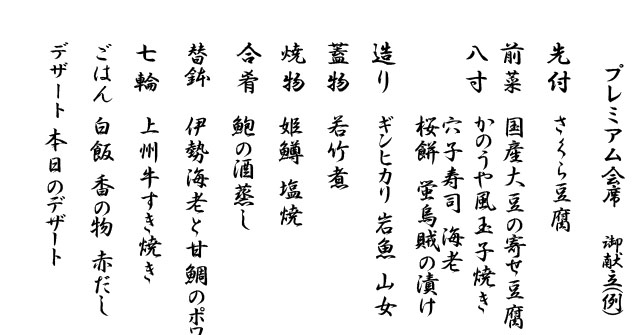 プレミアム会席 御献立(例)
先付 さくら豆腐
前菜 国産大豆の寄せ豆腐
八寸 かのうや風玉子焼き
穴子寿司 海老
桜餅 蛍烏賊の漬け
造り ギンヒカリ 岩魚 山女
蓋物 若竹煮
焼物 姫鱒 塩焼
合肴 鮑の酒蒸し
替鉢 伊勢海老と甘鯛のポワ
七輪 上州牛すき焼き
ごはん 白飯 香の物 赤だし
デザート 本日のデザート